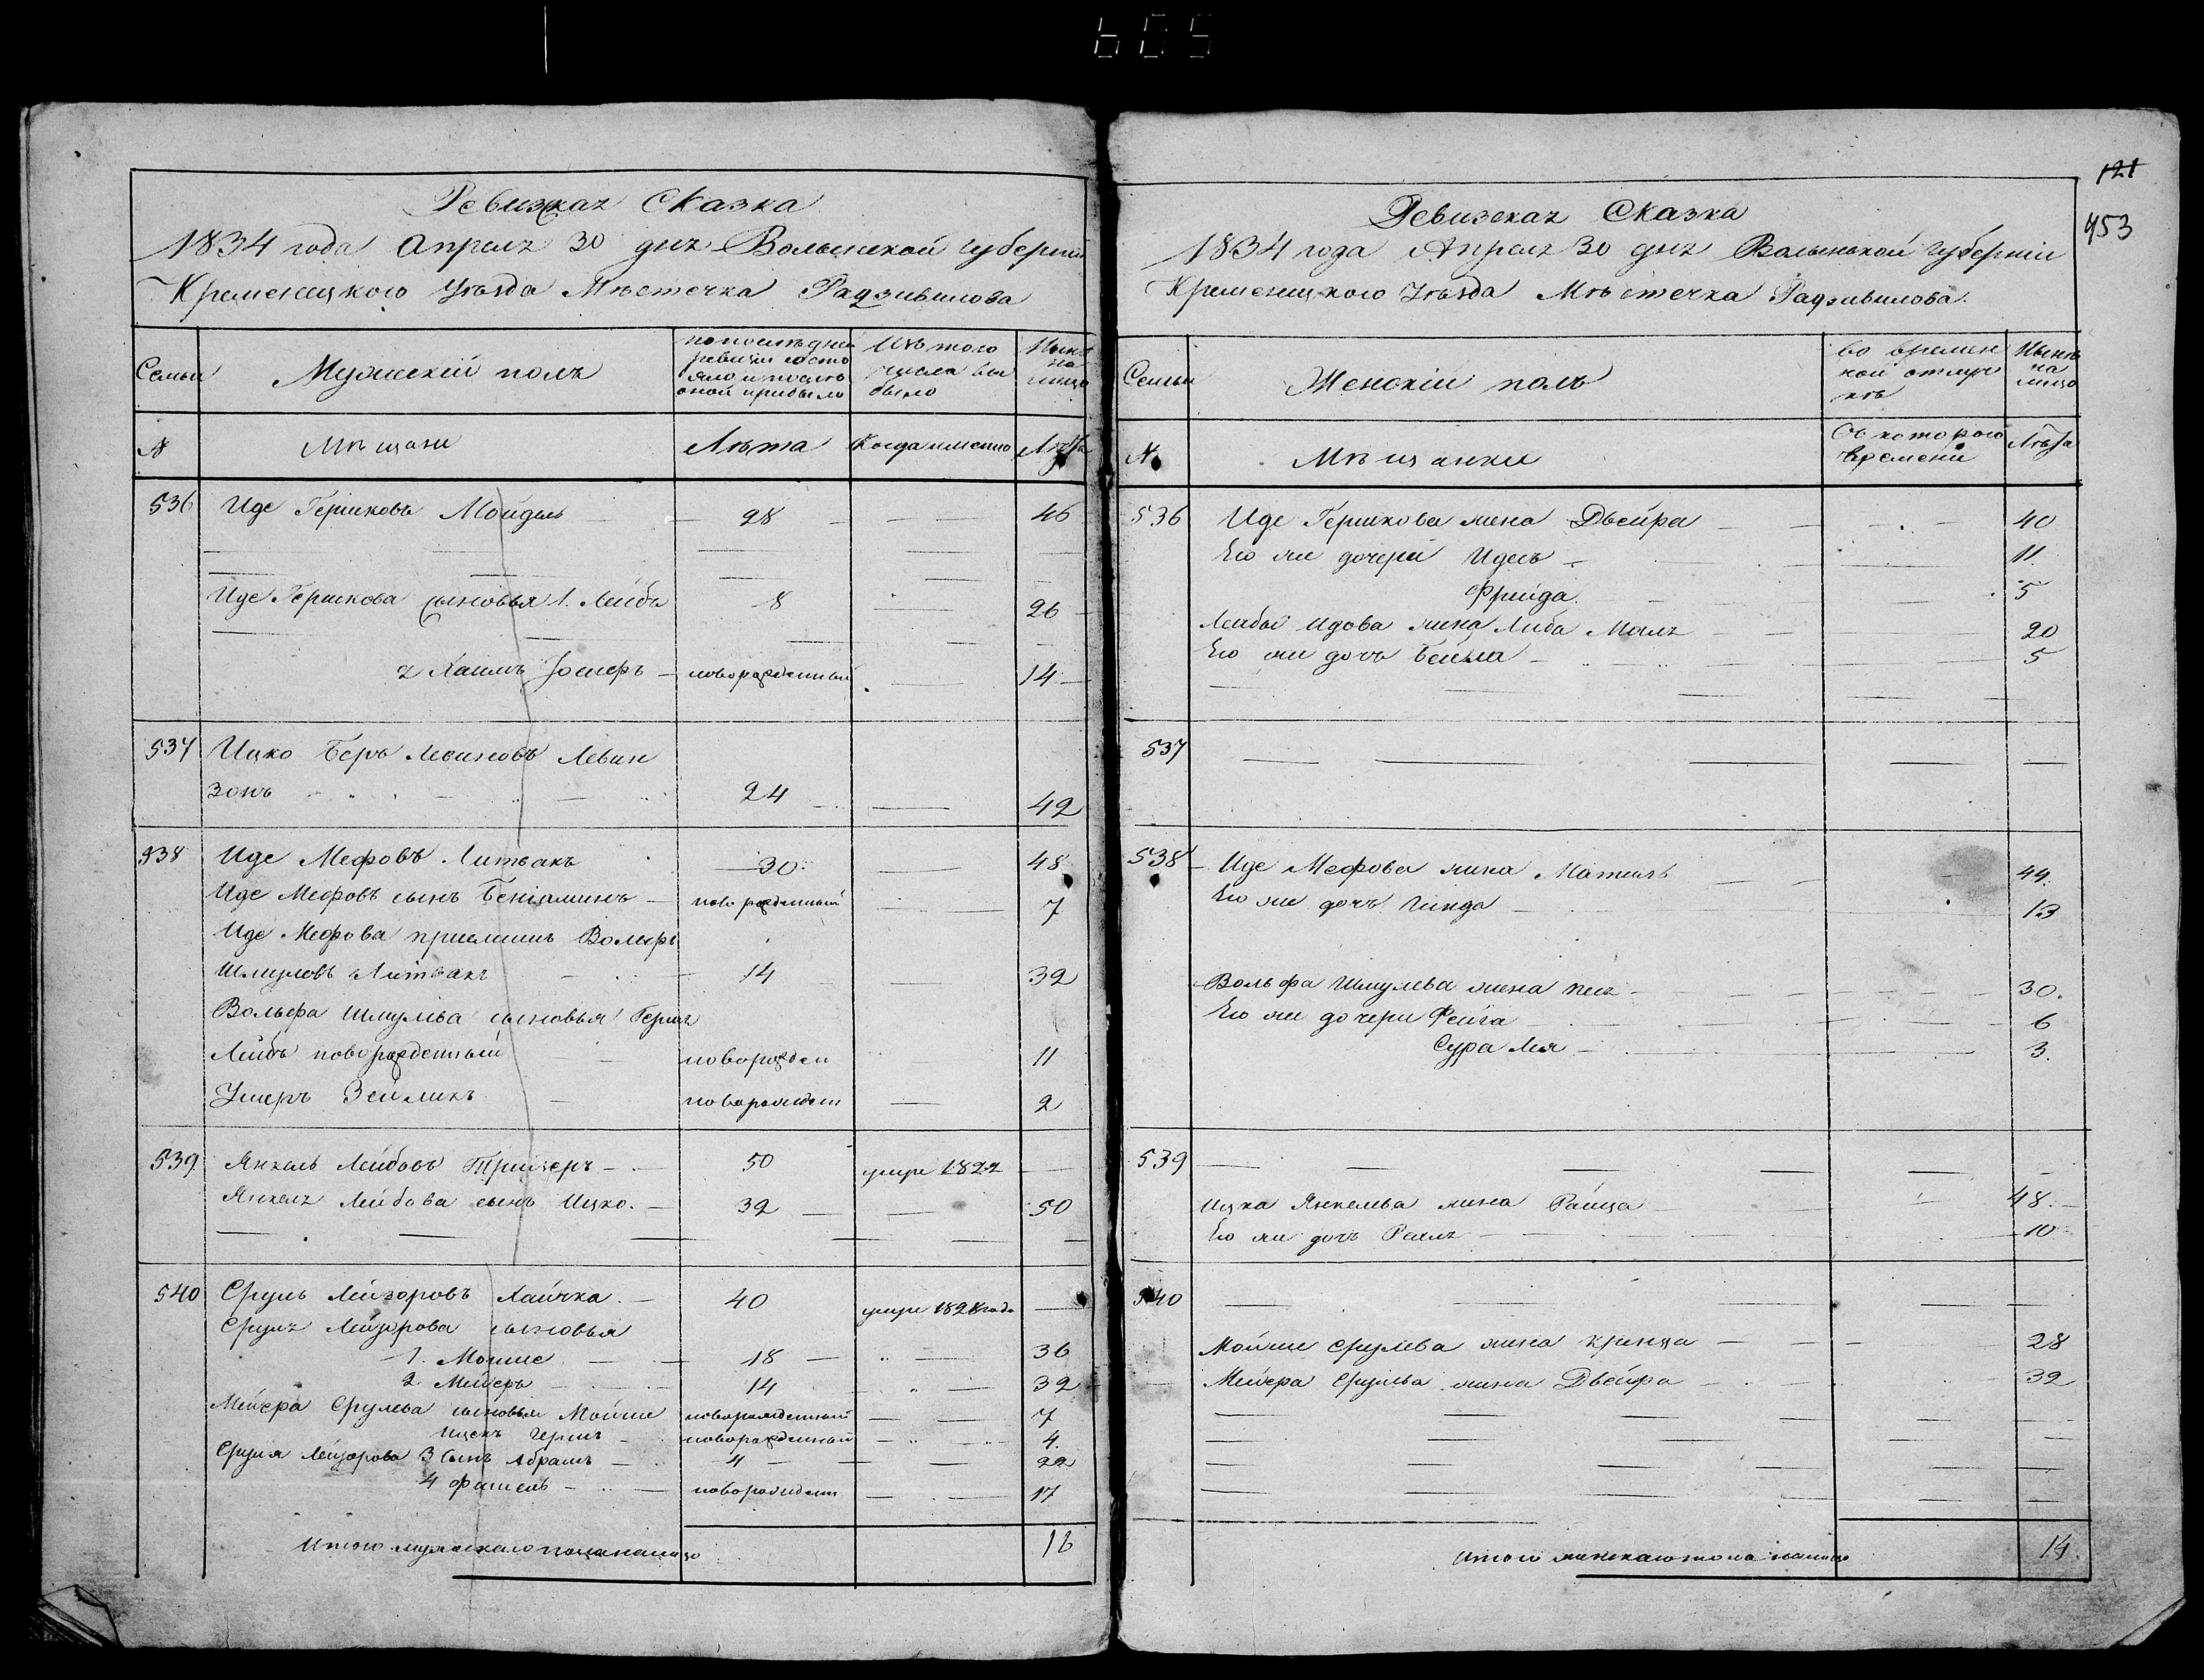 605
Ревизкая Сказка
1834 года Апреля 30 дня Волынской губернии
Кременецкого Уезда Мѣстечка Радзивилова
Семьи
Мужескій полъ
по последней
ревизіи состо
яло и послѣ
оной прибыло
Изъ того
числа вы
было
Нынѣ
на
лицо
№
Мѣщани
Лѣта
Когда именно
Лѣта
536 Иде Гершковъ Мойдель 28 46
Иде Гершкова сыновья 1. Лейба 8 26
2 Хаимъ Іосифъ новорожденный 14
537 Ицко Беръ Левиновъ Левин
зонъ 24 42
538 Иде Меѳровъ Литвакъ 30 48
Иде Меѳровъ сынъ Беніаминъ новорожденный 7
Иде Меѳрова приемишъ Вольфъ
Шмуловъ Литвакъ 14 32
Вольфа Шмулева сыновья Гершъ
Лейбъ новорожденный новорожден 11
Умеръ Зейликъ новорожден 2
539 Янкель Лейбовъ 50 умре 1822
Янкеля Лейбова сынъ Ицко. 32 50
540 Сруль Лейзоровъ Хайчка 40 умре 1828 года
Сруля Лейзорова сыновья
1. Мошие 18 36
2 Мейеръ 14 32
Мейера Срулева сыновья Мойше новорожденный 7
Ицекъ Гершъ новорожденный 4.
Сруля Лейзорова 3 Сынъ Абрамъ 4 22
4 Фишель новорожден 17
Итого мужескаго пола налицо 16
121
953
Ревизская Сказка
1834 года Апреля 30 дня Волынской губерніи
Кременецкого Уезда Мѣстечка Радзивилова.
Семьи
Женскій полъ
во времен
ной отлуч
кѣ
Нынѣ
на
лицо
№
Мѣщанки
Съ которого
времени
Лѣта
536 Иде Гершкова жена Двейра 40
Его же дочери Идесъ 11
Фрейда 5
Лейбы Идова жена Либа Маля 20
Его же дочь Бейла 5
537
538 Иде Меѳрова жена Матля 44.
Его же дочь Гинда 13
Вольфа Шмулева жена Песя 30.
Его же дочери Фейга 6
Сура Лея 3.
539
Ицка Янкелева жена Раица 48.
Его же дочь Рехля 10
540
Мойше Срулева жена Креица 28
Мейера Срулева жена Двейра 32
Итого женскаго пола налицо 14.